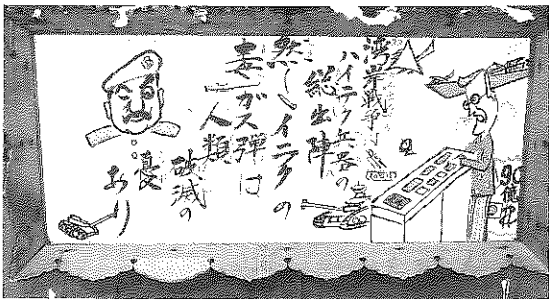 湾岸戦争は
ハイテク兵器の
総出陣
然しイラクの
毒ガス弾は
人類
破滅の
あり